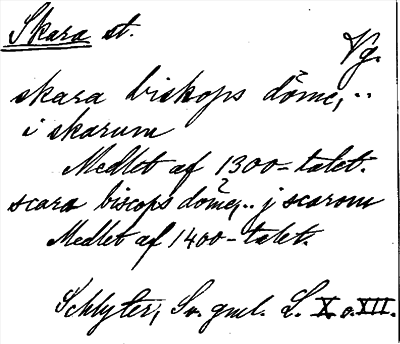 Skara st.
Vg.
skara biskops döme,..
i skarum
Medlet af 1300-talet.
scara biscops döme,.. j scarom
Medlet af 1400-talet.
Schlyter, Sv. gml. L. X o. XII.